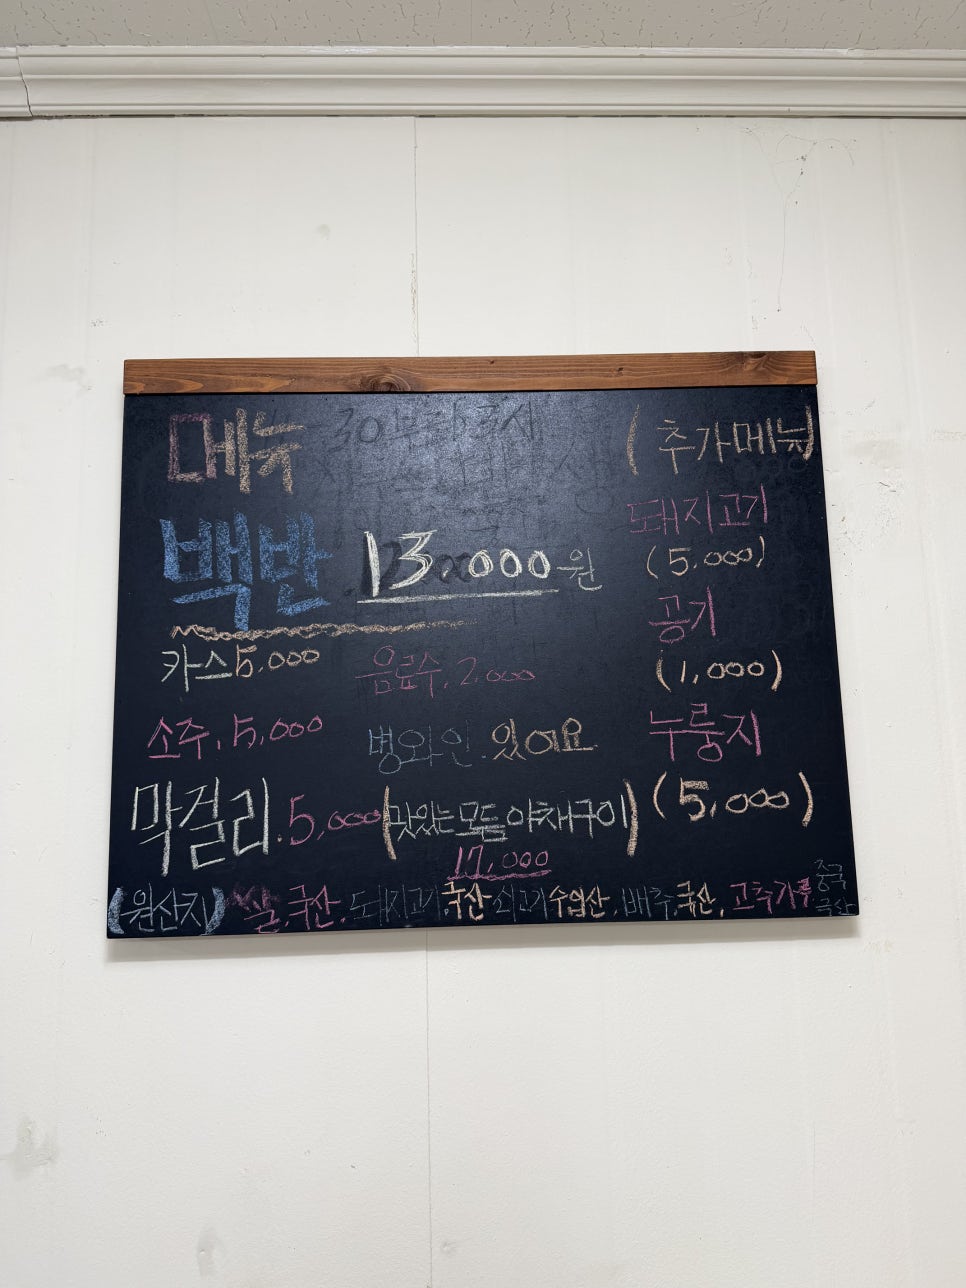 메뉴
백반 13,000원
카스 5,000 음료수, 2,000
소주, 5,000 병와인 있어요
막걸리. 5,000 (맛있는 모듬 야채구이)
17,000
(추가메뉴)
돼지고기
(5,000)
공기
(1,000)
누룽지
(5,000)
(원산지) 쌀, 국산, 돼지고기, 국산, 쇠고기 수입산, 배추, 국산, 고추가루 중국
국산